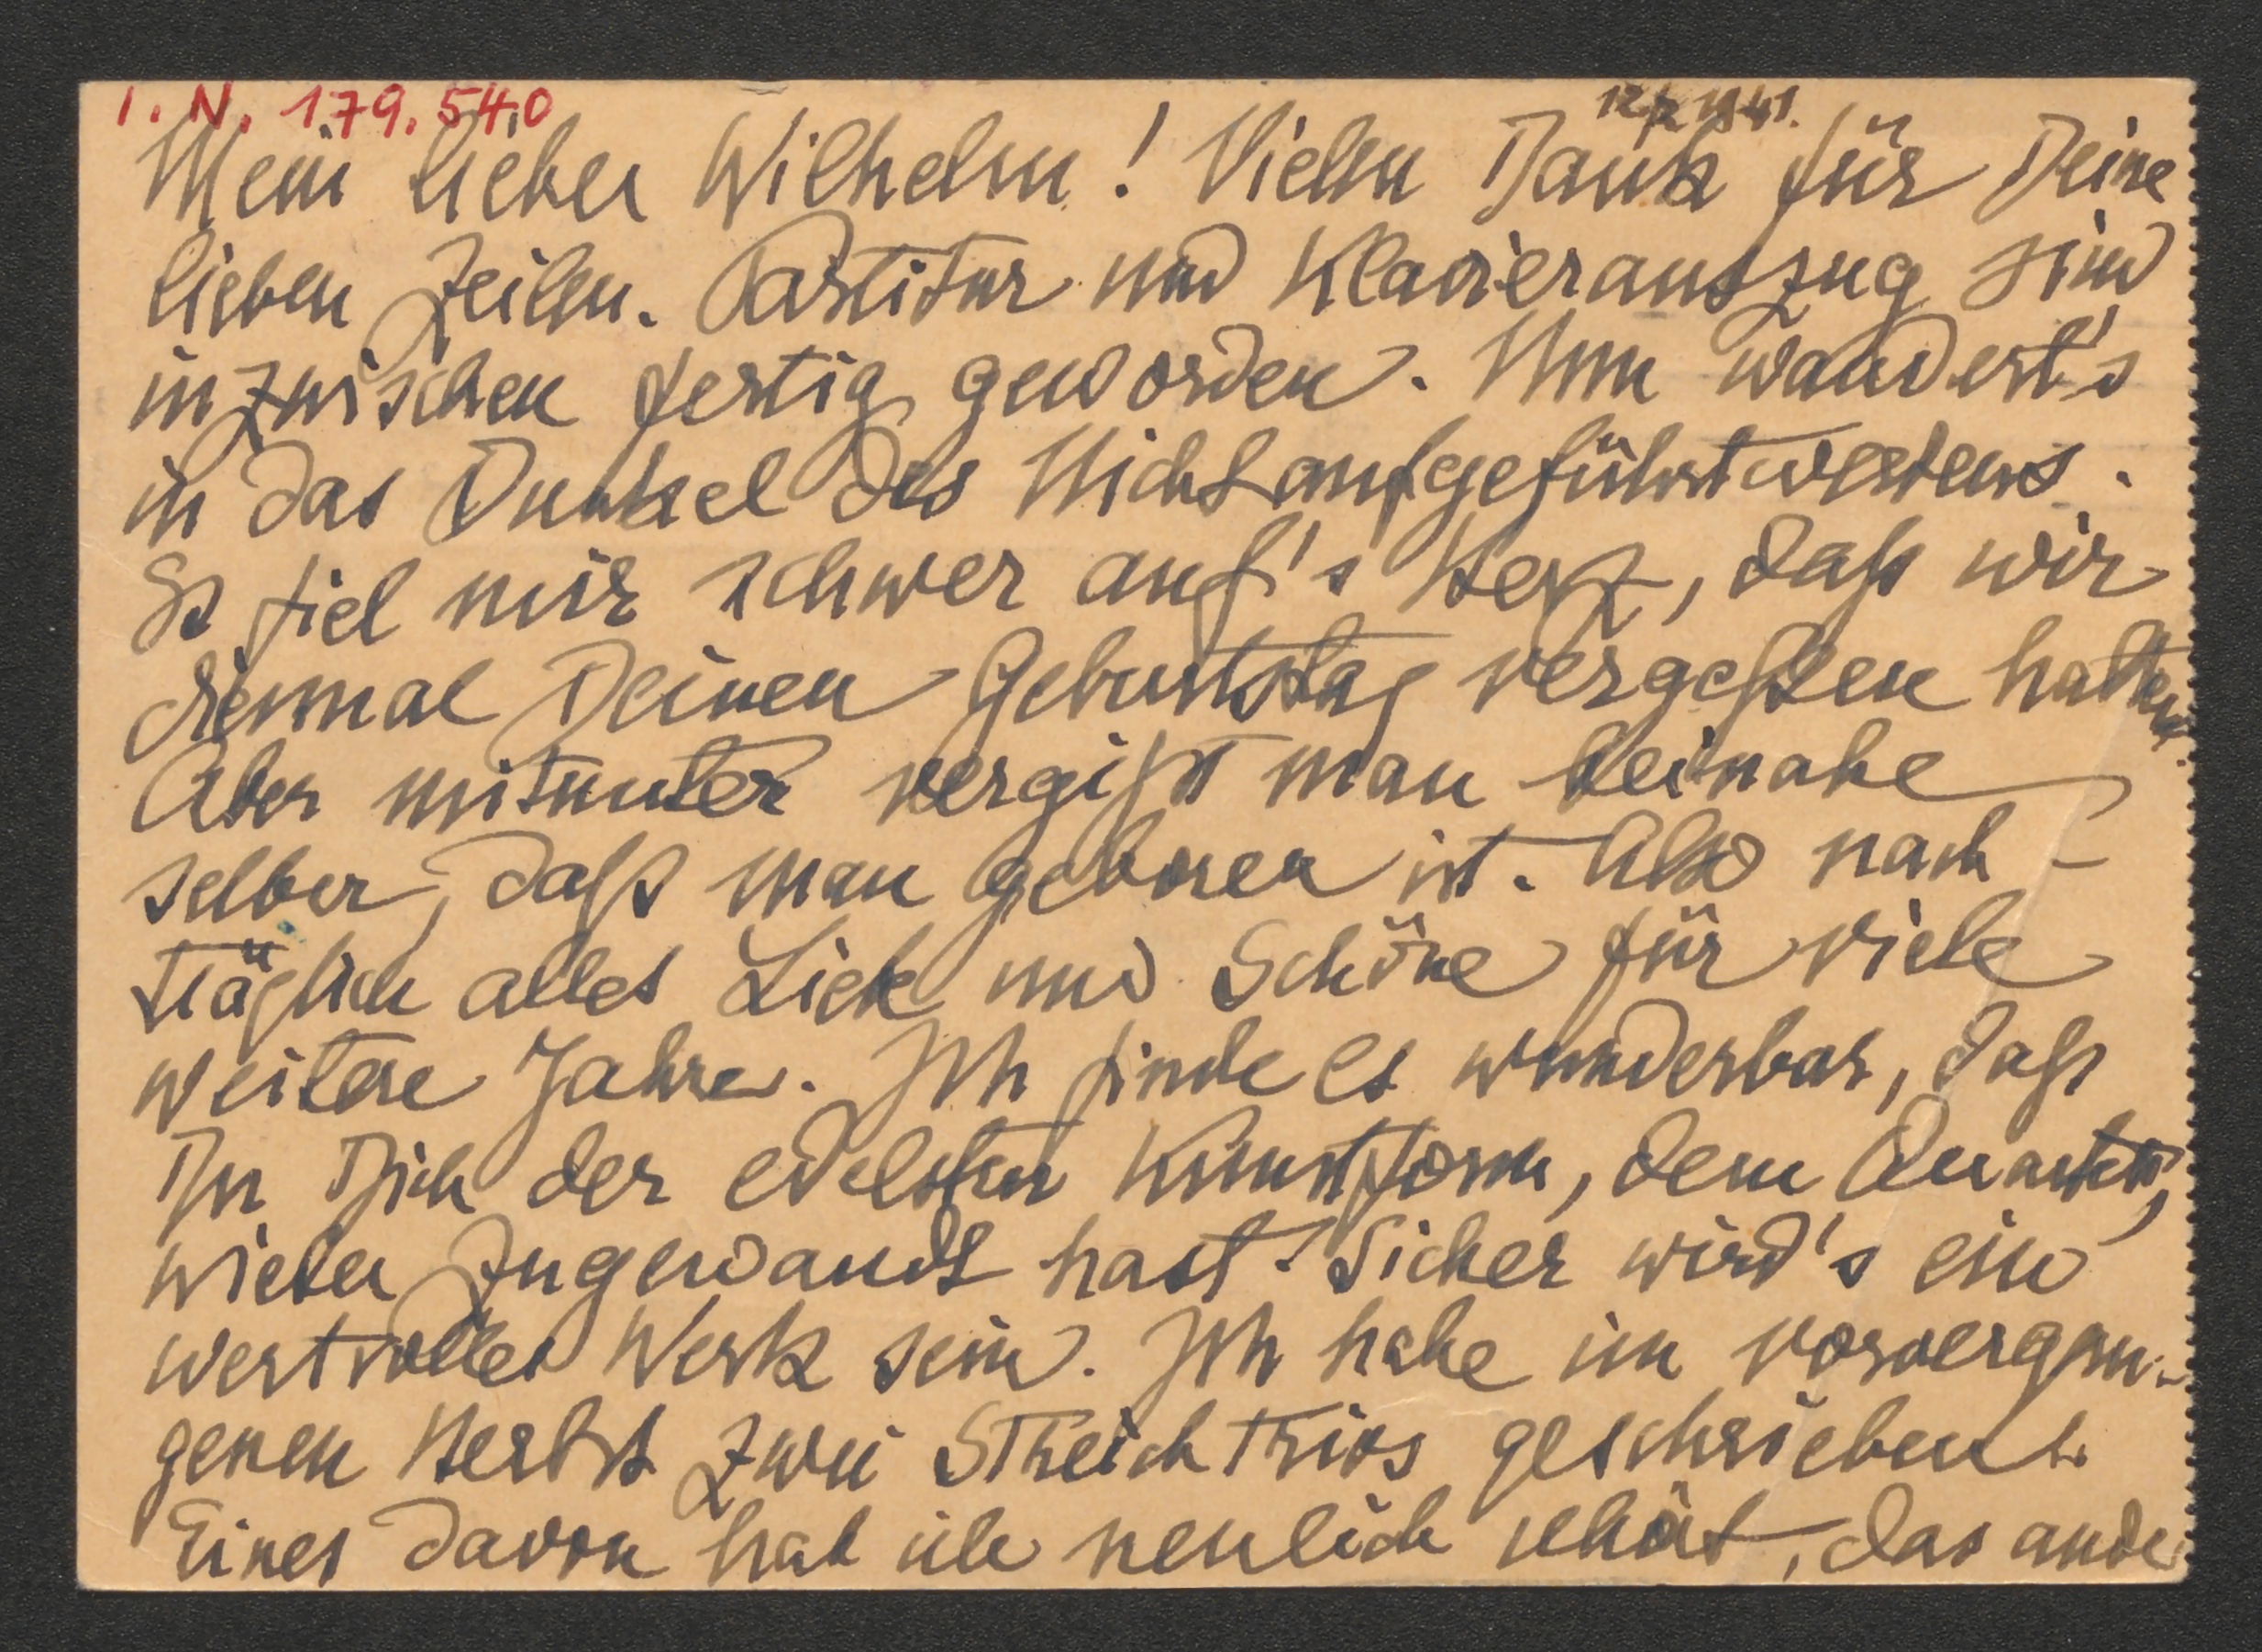 I. N. 179.540
12/2 1941.
Mein lieber Wilhelm! Vielen Dank für Deine
lieben Zeilen. Partitur und Klavierauszug sind
inzwischen fertig geworden. Nun wandert's
in das Dunkel des Nichtaufgeführtwerdens.
Es fiel mir schwer auf's Herz, daß wir
diesmal Deinen Geburtstag vergeßen hatten.
Aber mitunter vergißt man beinahe
selber, daß man geboren ist. Also nach-
träglich alles Liebe und Schöne für viele
weitere Jahre. Ich finde es wunderbar, daß
Du Dich der edelsten Kunstform, dem Quartett,
wieder zugewandt hast. Sicher wird's ein
wertvolles Werk sein. Ich habe im vorvergan-
genen Herbst zwei Streichtrios geschrieben.
Eines davon hab ich neulich gehört, das ande